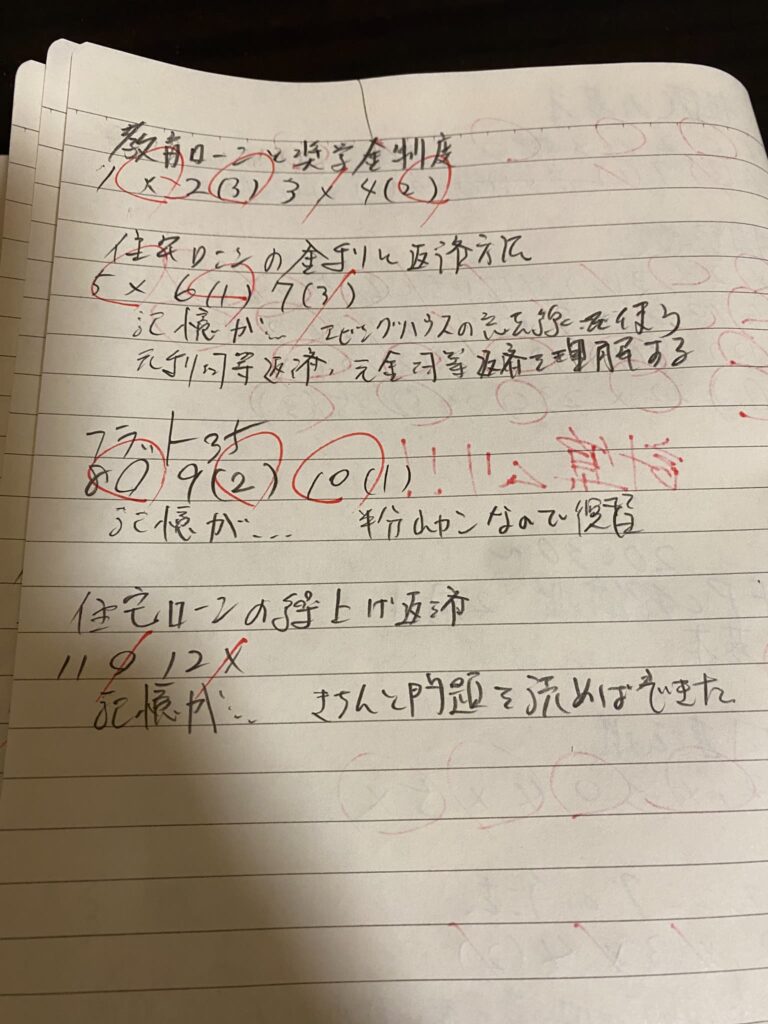 教育ローンと奨学金制度
1 × 2(3) 3 × 4(2)
住宅ローンの金利と返済方法
5 × 6(1) 7(3)
記憶が… エビングハウスの忘去線を使う
元利均等返済、元金均等返済を理解する
フラット35
8 ○ 9(2) 10(1)
記憶が… 半分カンなので復習
住宅ローンの繰上げ返済
11 ○ 12 ×
記憶が… きちんと問題を読めばできた